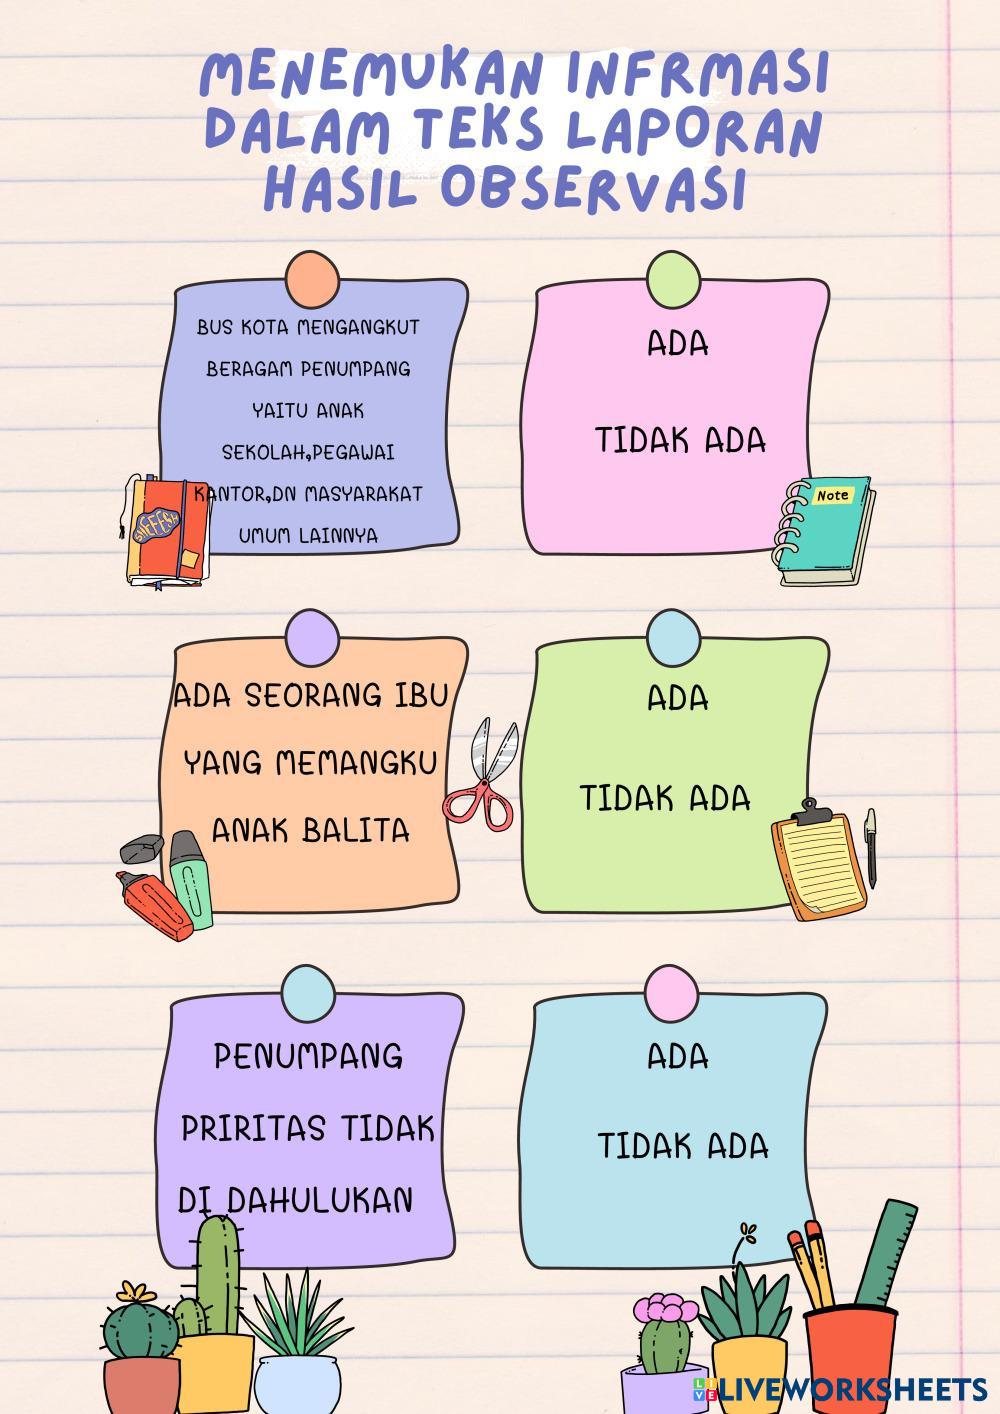 MENEMUKAN INFRMASI
DALAM TEKS LAPORAN
HASIL OBSERVASI
BUS KOTA MENGANGKUT
BERAGAM PENUMPANG
YAITU ANAK
SEKOLAH,PEGAWAI
KANTOR,DN MASYARAKAT
UMUM LAINNYA
ADA
TIDAK ADA
Note
ADA SEORANG IBU
YANG MEMANGKU
ANAK BALITA
ADA
TIDAK ADA
PENUMPANG
PRIRITAS TIDAK
DI DAHULUKAN
ADA
TIDAK ADA
LIVE LIVEWORKSHEETS